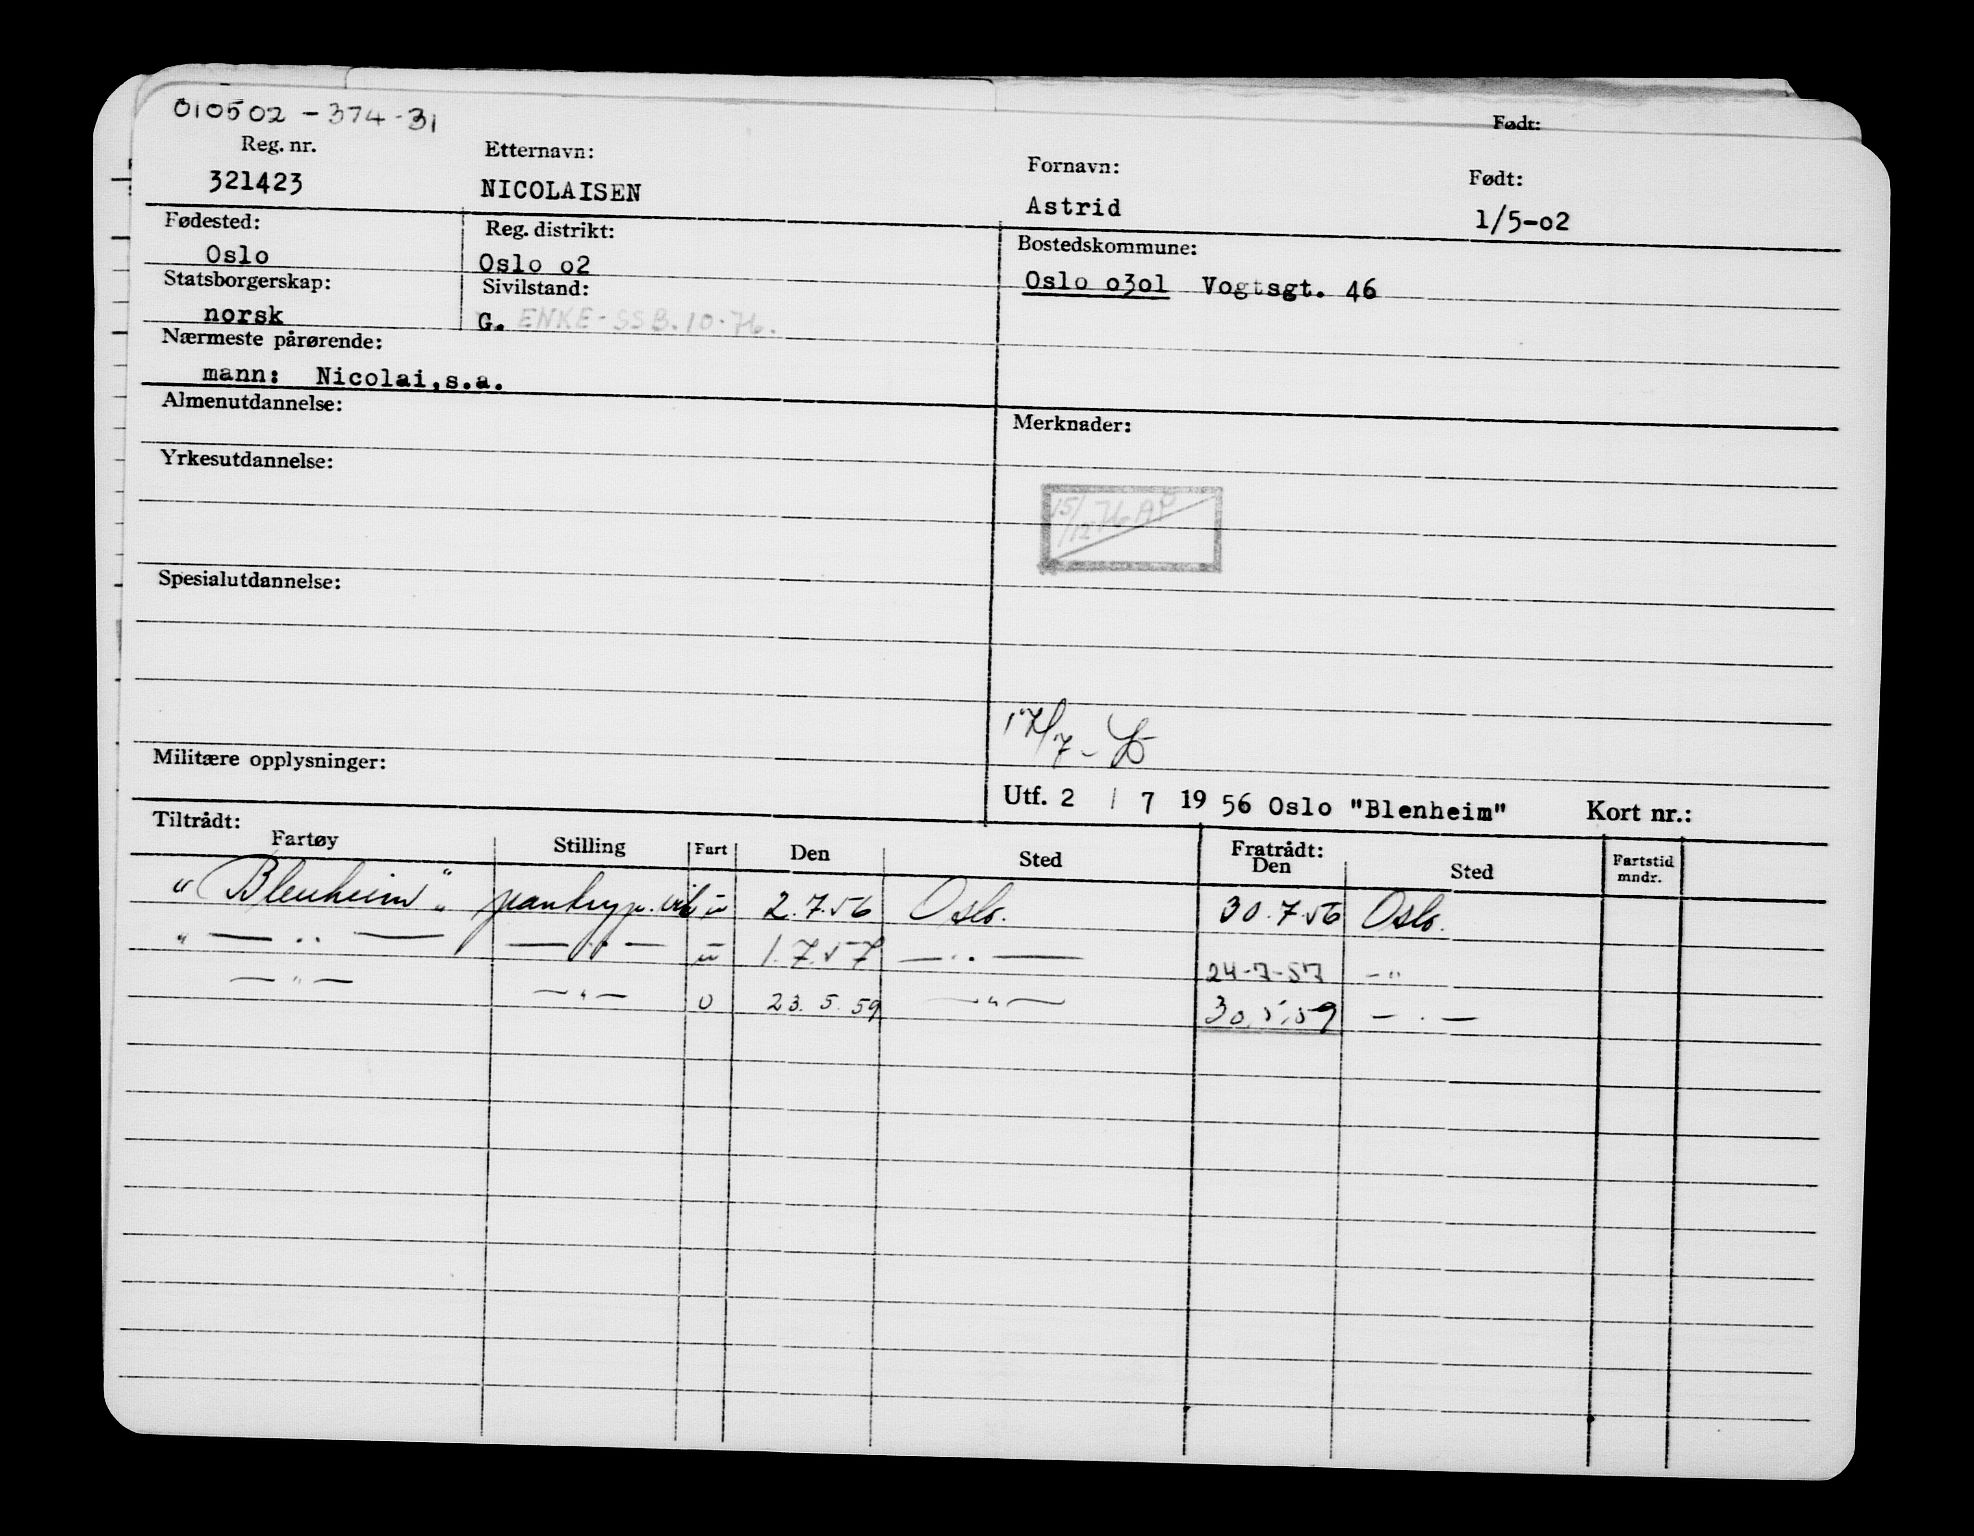 010502-374-31
Født:
Reg. nr. Etternavn: Fornavn: Født:
321423 NICOLAISEN Astrid 1/5-o2
Fødested: Reg. distrikt: Bostedskommune:
Oslo Oslo o2 Oslo o3o1 Vogtsgt. 46
Statsborgerskap: Sivilstand:
norsk G. ENKE-SSB.10-76.
Nærmeste pårørende:
mann: Nicolai,s.a.
Almenutdannelse: Merknader:
Yrkesutdannelse:
15/12 76
Spesialutdannelse:
17/7-
Militære opplysninger:
Utf. 2 / 7 19 56 Oslo "Blenheim" Kort nr.:
Tiltrådt: Fratrådt:
Fartøy Stilling Fart Den Sted Den Sted Fartstid mndr.
"Blenheim" u 2.7.56 Oslo. 30.7.56 Oslo.
" — .. — — " — u 1.7.57 — .. — 24-7-57 - "
— " — — " — U 23.5.59 — " — 30.5.59 — . —